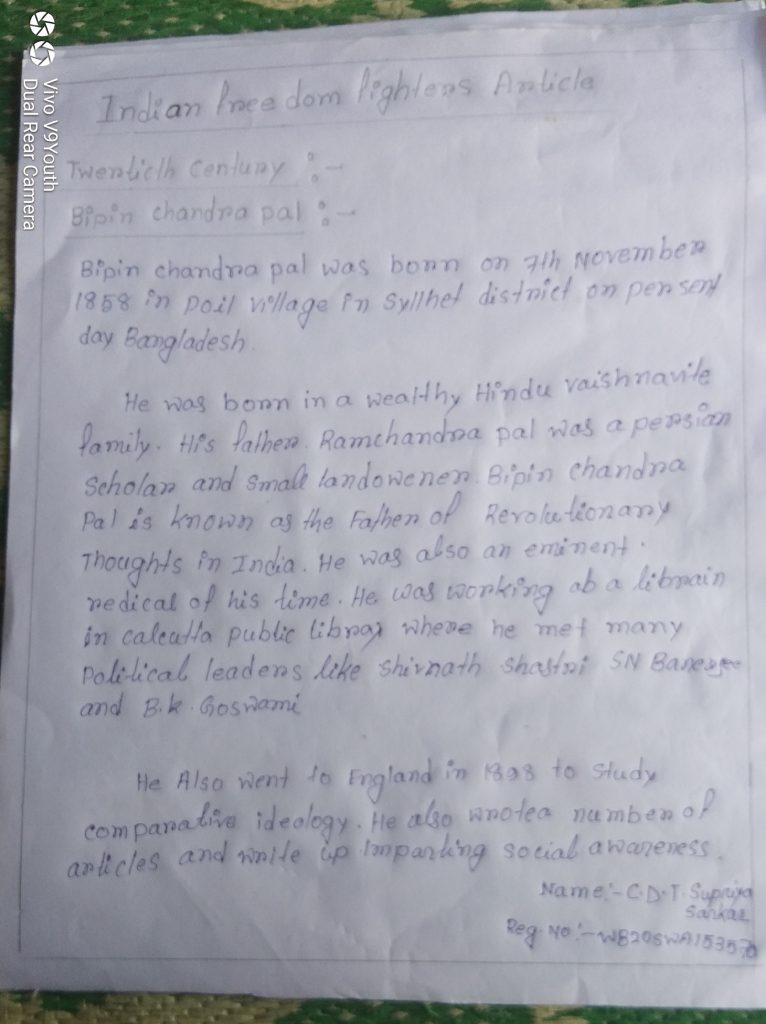 Vivo V9Youth
Dual Rear Camera
Indian freedom fighters Article
Twentieth Century :-
Bipin chandra pal :-
Bipin chandra pal was born on 7th November
1858 in poil village in Syllhet district on persent
day Bangladesh.
He was born in a wealthy Hindu vaishnavite
family. His father. Ramchandra pal was a persian
Scholar and small landowener. Bipin chandra
Pal is known as the Father of Revolutionary
Thoughts in India. He was also an eminent.
redical of his time. He was working ab a librain
in calcutta public libray where he met many
Political leaders like Shivnath Shastri SN Banerjee
and B.k. Goswami
He Also went to England in 1898 to Study
comparative ideology. He also wrotea number of
articles and write up Imparking social awareness.
Name:- C.D.T. Supriya
Sarkar
Reg. No:- WB20SWA153570